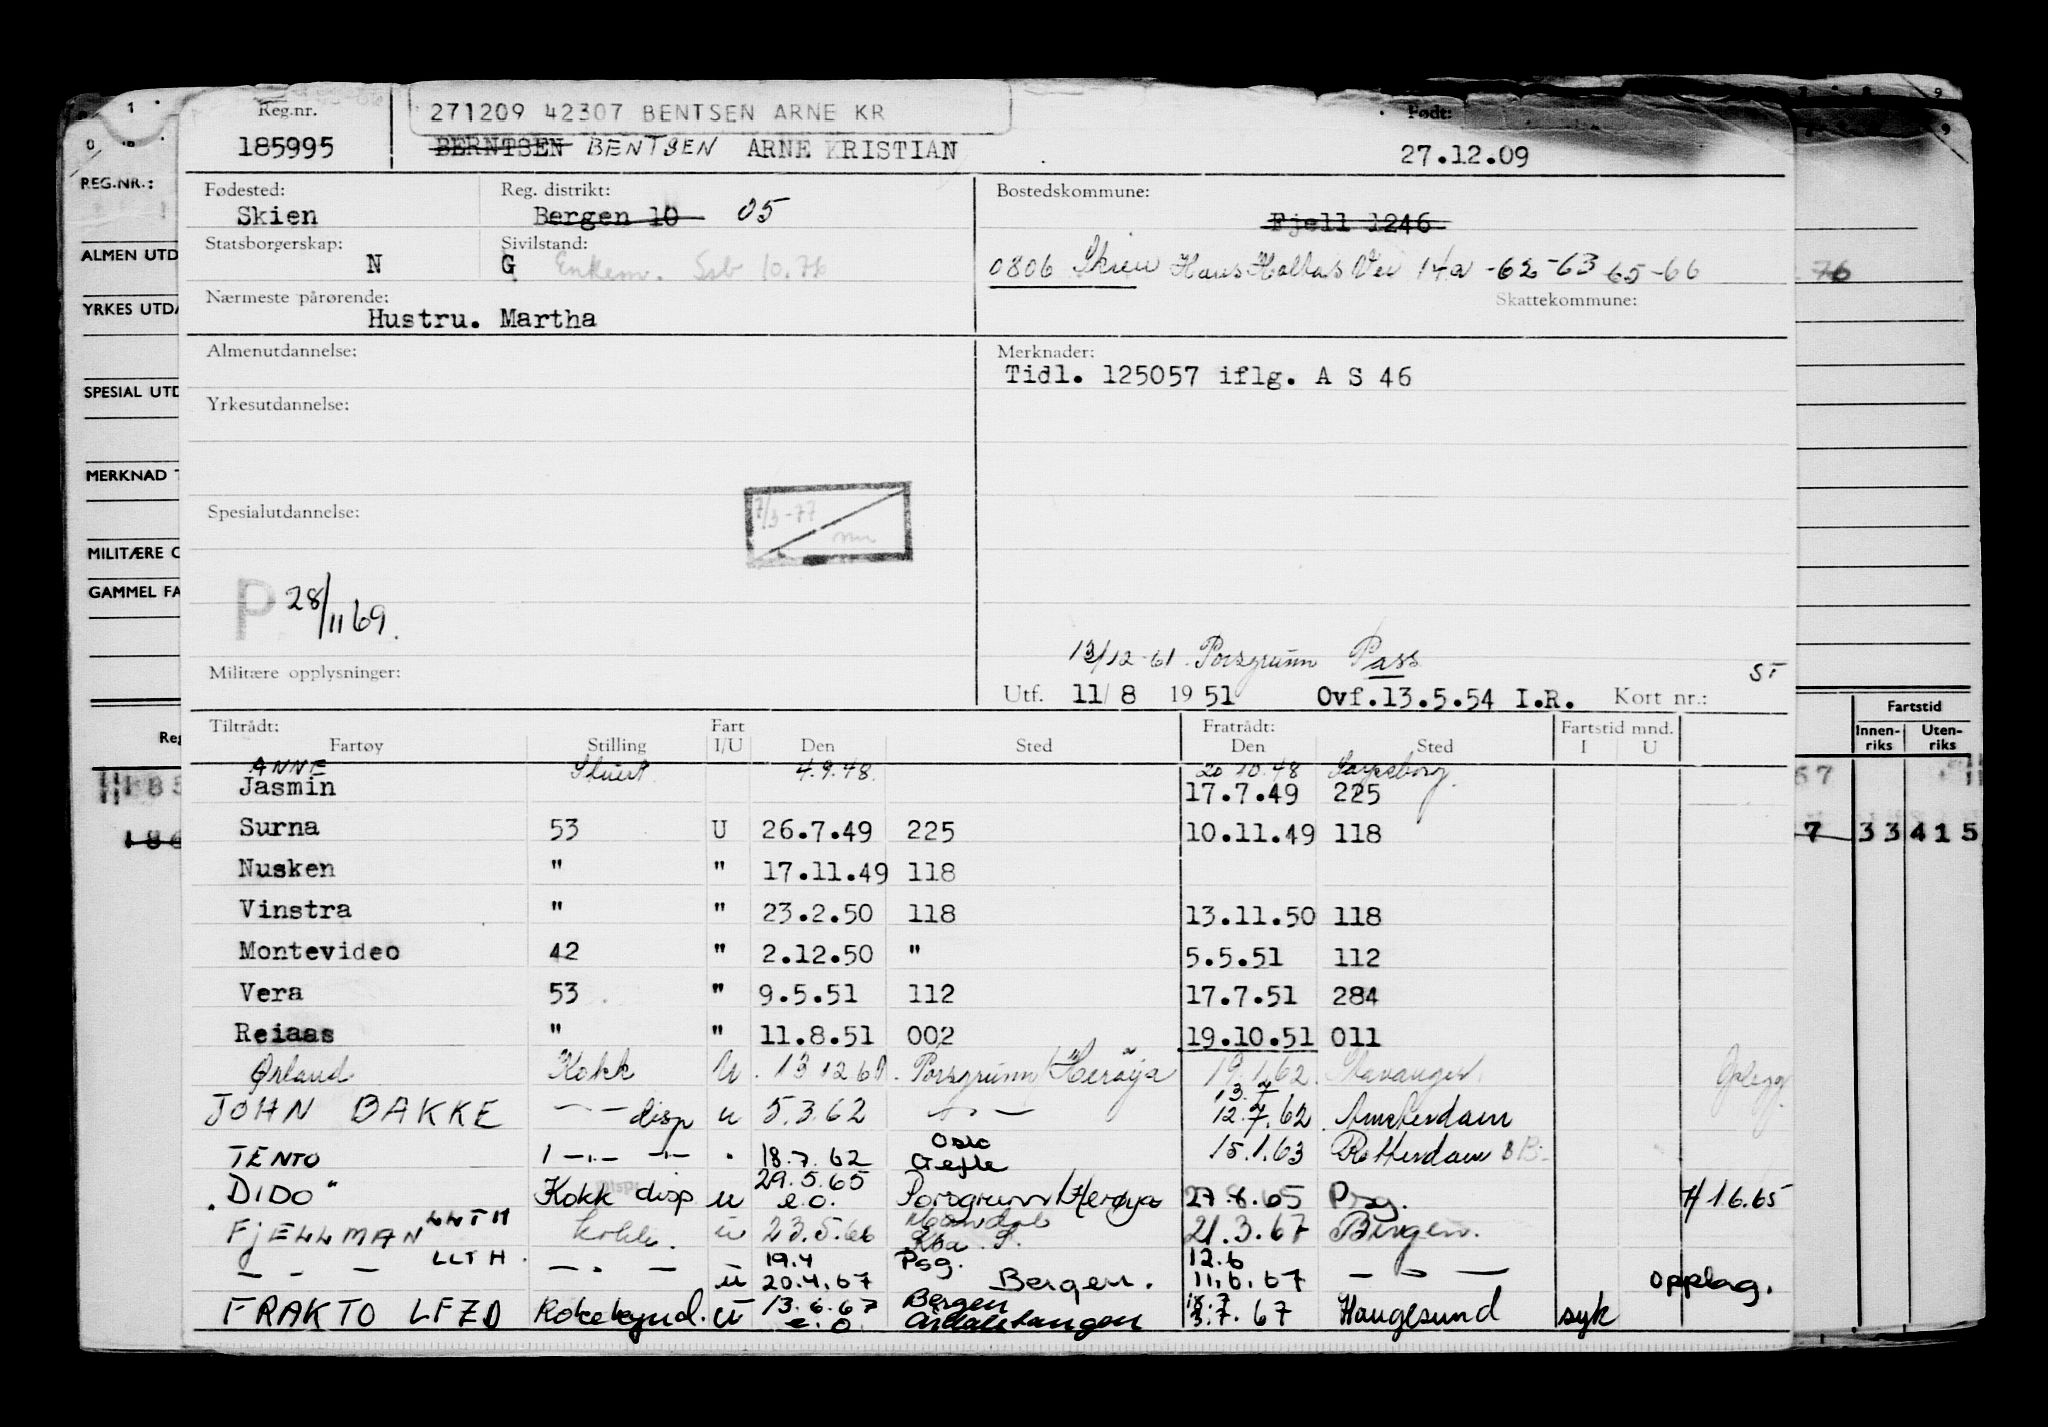 Reg.nr. 271209 42307 BENTSEN ARNE KR Født:
185995 BERNTSEN BENTSEN ARNE KRISTIAN 27.12.09
REG.NR.:
Fødested: Reg. distrikt: Bostedskommune:
Skien Bergen 10 05 Fjell 1246
Statsborgerskap: Sivilstand:
ALMEN UTD N G Enkem. Ssb 10.76 0806 Skien Hans Holbas Vei 14a -62-63 65-66 76
Nærmeste pårørende: Skattekommune:
YRKES UTDA Hustru. Martha
Almenutdannelse: Merknader:
Tidl. 125057 iflg. A S 46
SPESIAL UTD
Yrkesutdannelse:
MERKNAD
Spesialutdannelse: 7/3-77
MILITÆRE O
GAMMEL FA
P 28/11 69.
13/12-61. Porsgrunn Pass
Militære opplysninger: ST
Utf. 11/8 1951 Ovf.13.5.54 I.R. Kort nr.:
Tiltrådt: Fart Fratrådt: Fartstid mnd. Fartstid
Reg Fartøy Stilling I/U Den Sted Den Sted I U Innen-riks Uten-riks
ANNE Stuert 4.9.48. 20.10.48 Sarpsborg
Jasmin 17.7.49 225
Surna 53 U 26.7.49 225 10.11.49 118 7 33 415
Nusken " " 17.11.49 118
Vinstra " " 23.2.50 118 13.11.50 118
Montevideo 42 " 2.12.50 " 5.5.51 112
Vera 53 " 9.5.51 112 17.7.51 284
Reiaas " " 11.8.51 002 19.10.51 011
Ørland Kokk U. 13 12 61. Porsgrunn/Herøya 19.1.62. Stavanger. Opplegg
13.7
JOHN BAKKE — — disp u 5.3.62 — — 12.7.62 Amsterdam
Oslo
TENTO 18.7.62 Gefle 15.1.63 Rotterdam
29.5.65
"DIDO" Kokk disp u e.o. Porsgrunn/Herøya 27.8.65 Psg. H 1.6.65
FJELLMAN LLTH kokk. u 23.5.66 Mandal 21.3.67 Bergen.
Kba. S.
LLTH. 19.4 Psg. 12.6
— - — — . — u 20.4.67 Bergen. 11.6.67 — — — Opplag.
13.6.67 Bergen 18.7
FRAKTO LFZD Kokekynd. U e.o. Årdalstangen 3.7.67 Haugesund syk